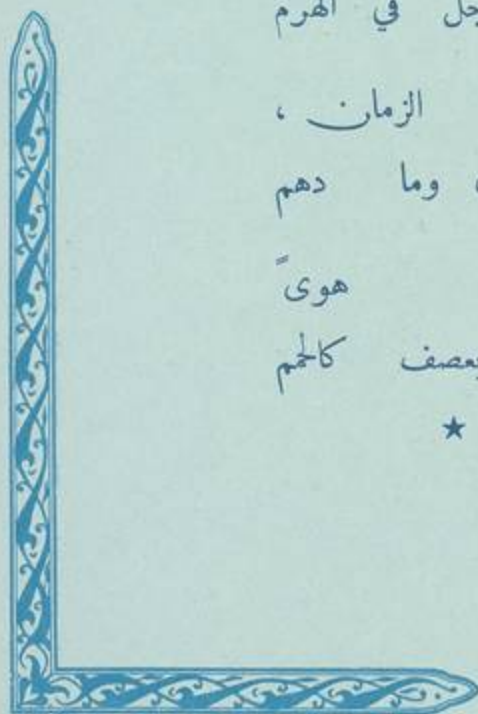 في الهرم
الزمان ،
وما دهم
هوىً
يعصف كالحمم
★